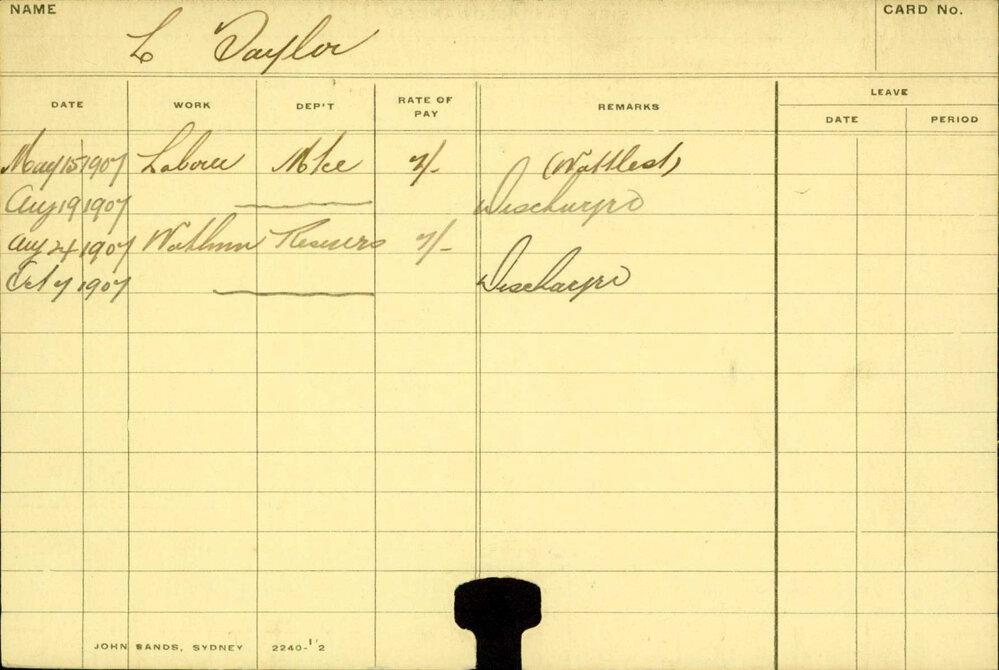 NAME
L Taylor
CARD No.
DATE WORK DEP'T RATE OF PAY REMARKS LEAVE
DATE PERIOD
May 15 1907 Labour 7/- (Wattlest)
Aug 19 1907 Discharged
Aug 24 1907 7/-
Oct 7 1907 Discharged
JOHN SANDS, SYDNEY 2240-1'2